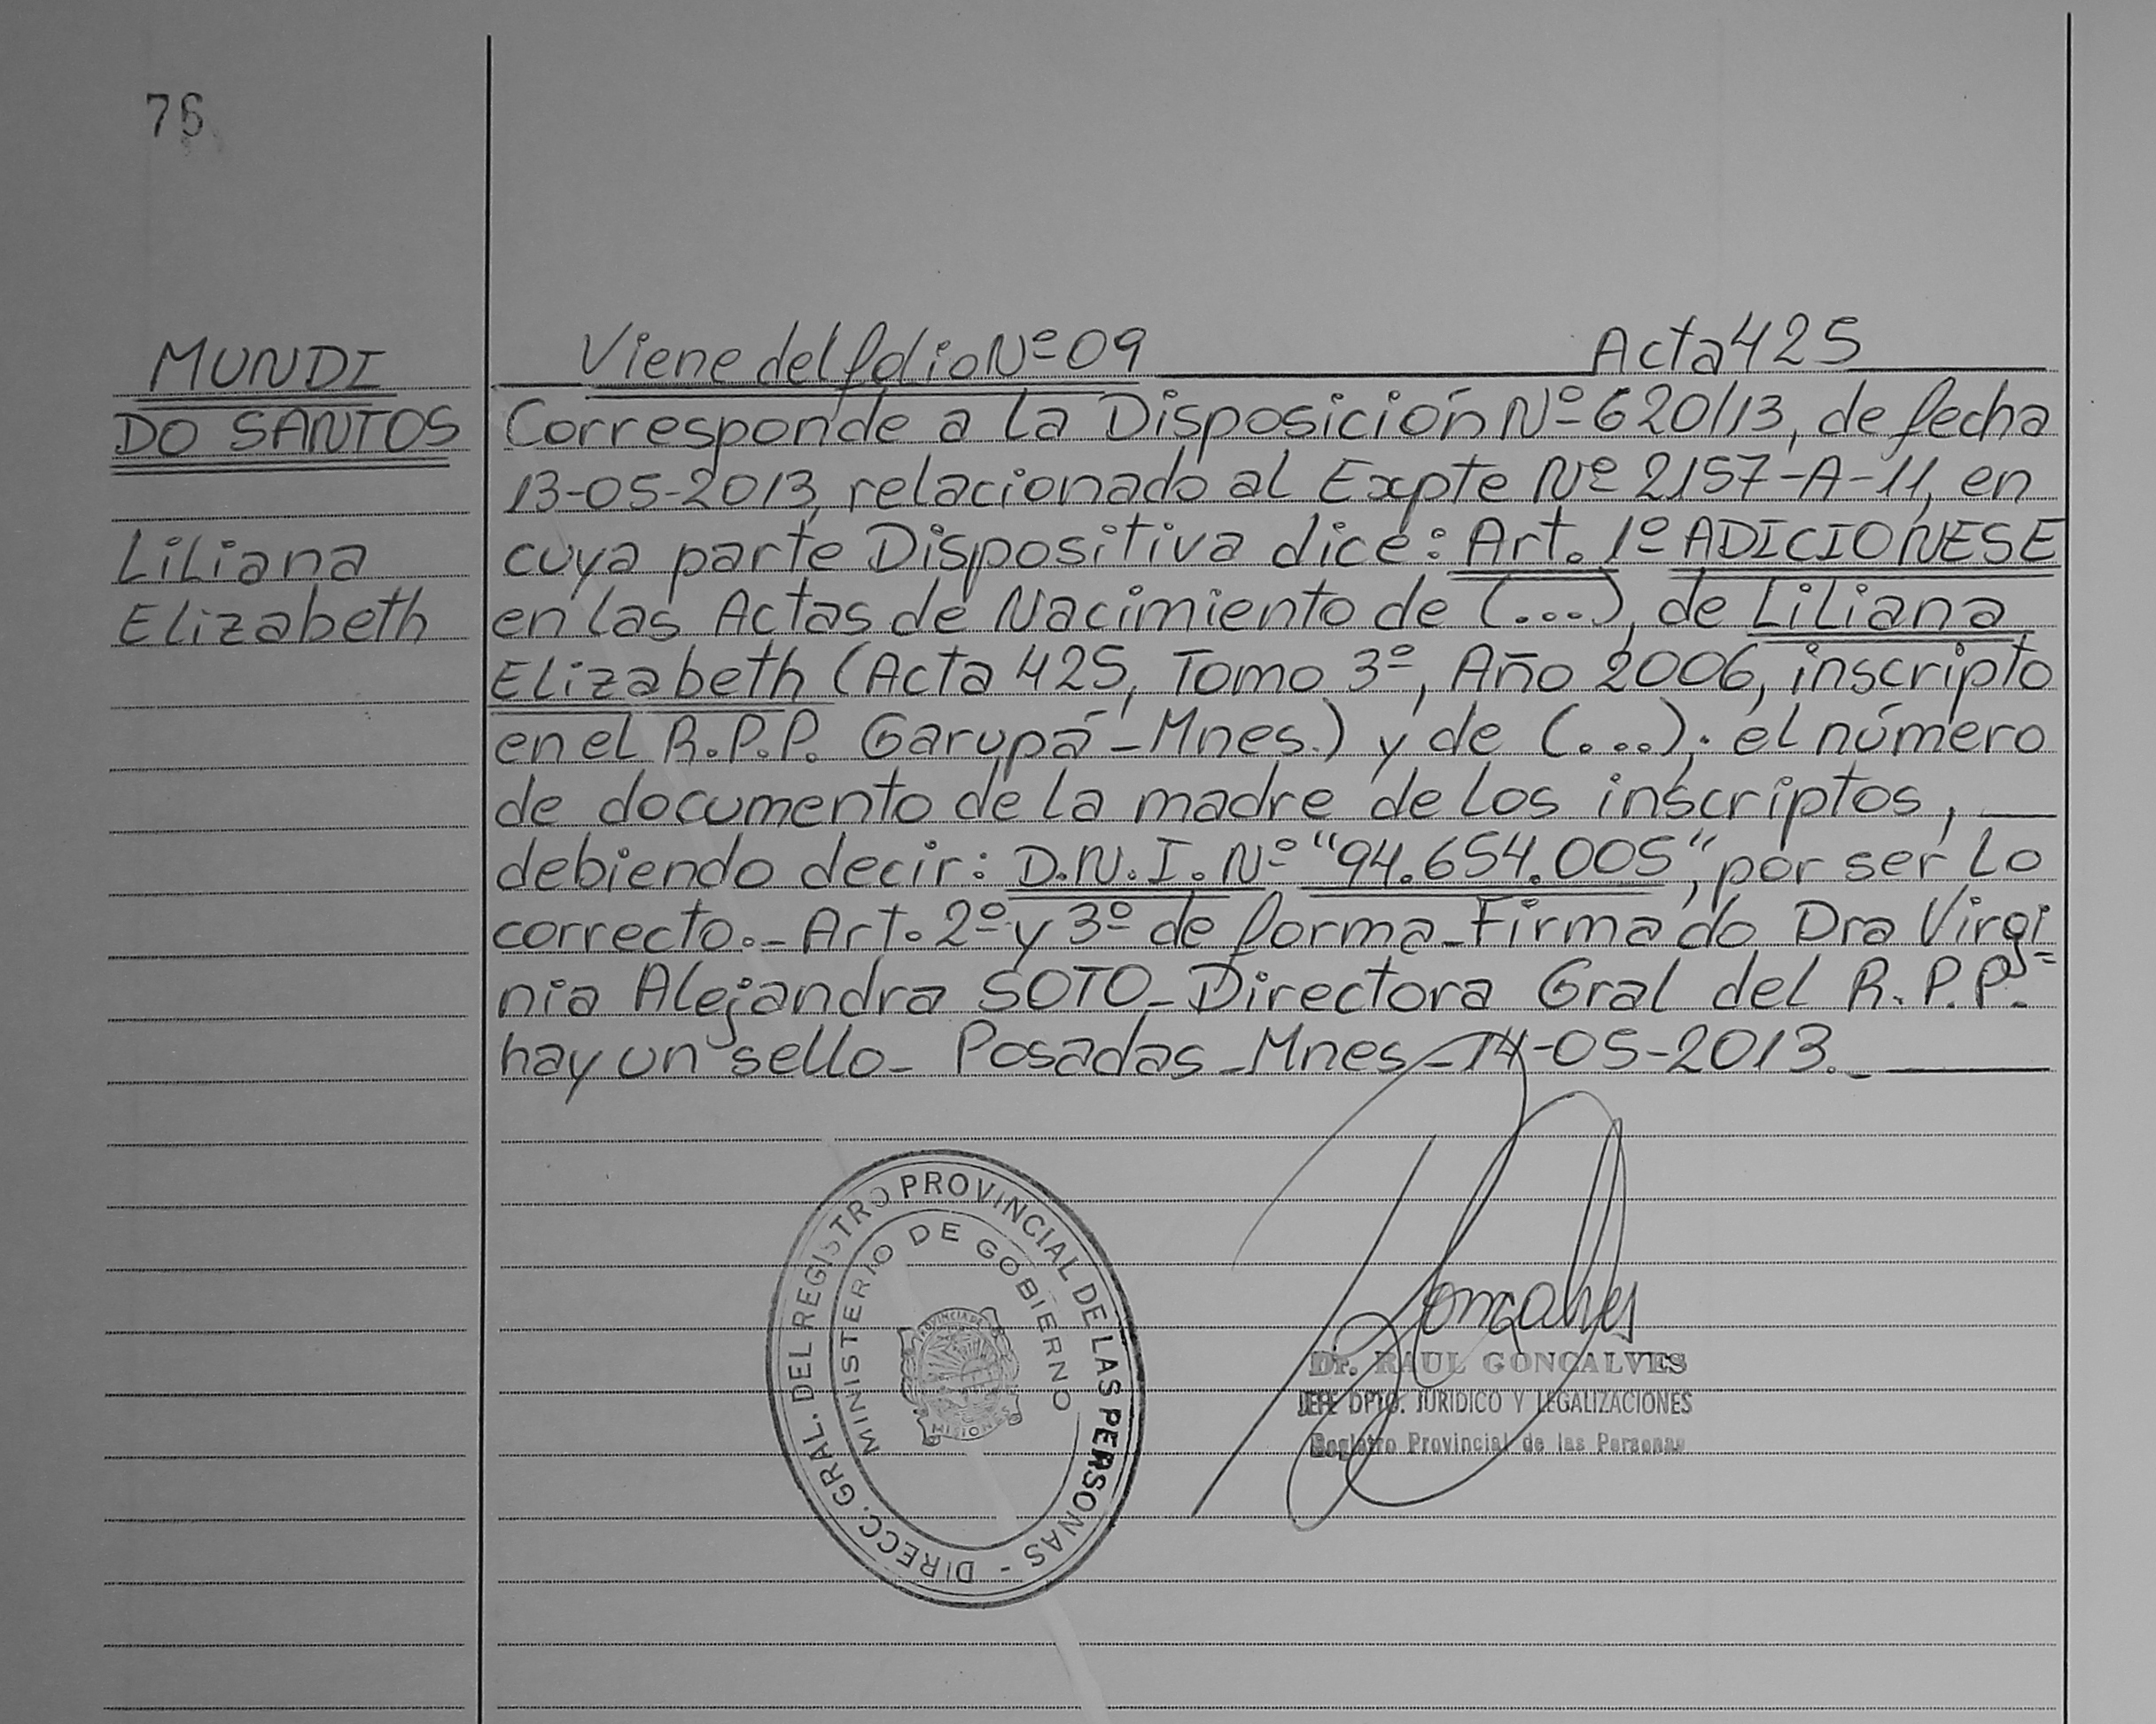 76
MUNDI
DO SANTOS
Liliana
Elizabeth
Viene del folio Nº 09 Acta 425
Corresponde a la Disposición Nº 620/13, de fecha
13-05-2013, relacionado al Expte Nº 2157-A-11, en
cuya parte Dispositiva dice: Art. 1º ADICIONESE
en las Actas de Nacimiento de (...), de Liliana
Elizabeth (Acta 425, Tomo 3º, Año 2006, inscripto
en el R.P.P. Garupá-Mnes.) y de (...); el número
de documento de la madre de los inscriptos,
debiendo decir: D.N.I. Nº "94.654.005", por ser lo
correcto.- Art. 2º y 3º de forma-Firmado Dra Virgi=
nia Alejandra SOTO-Directora Gral del R.P.P.-
hay un sello- Posadas-Mnes-14-05-2013.-
DIRECC. GRAL. DEL REGISTRO PROVINCIAL DE LAS PERSONAS -
MINISTERIO DE GOBIERNO
PROVINCIA DE
MISIONES
Goncalves
Dr. RAUL GONCALVES
JEFE DPTO. JURIDICO Y LEGALIZACIONES
Registro Provincial de las Personas